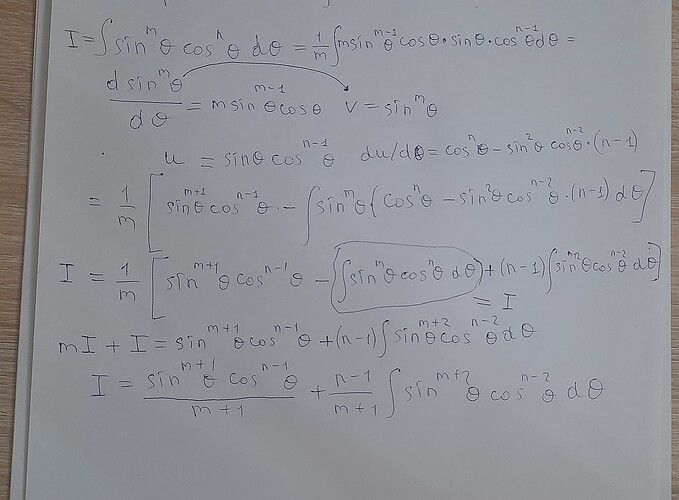 I = ∫ sin^m θ cos^n θ dθ = 1/m ∫ m sin^(m-1) θ cos θ · sin θ · cos^(n-1) θ dθ =
d sin^m θ / dθ = m sin^(m-1) θ cos θ   v = sin^m θ
u = sin θ cos^(n-1) θ   du/dθ = cos^n θ - sin^2 θ cos^(n-2) θ · (n-1)
= 1/m [ sin^(m+1) θ cos^(n-1) θ - ∫ sin^m θ ( cos^n θ - sin^2 θ cos^(n-2) θ · (n-1) dθ ]
I = 1/m [ sin^(m+1) θ cos^(n-1) θ - ∫ sin^m θ cos^n θ dθ + (n-1) ∫ sin^(m+2) θ cos^(n-2) θ dθ ]
= I
mI + I = sin^(m+1) θ cos^(n-1) θ + (n-1) ∫ sin^(m+2) θ cos^(n-2) θ dθ
I = sin^(m+1) θ cos^(n-1) θ / m+1 + n-1 / m+1 ∫ sin^(m+2) θ cos^(n-2) θ dθ